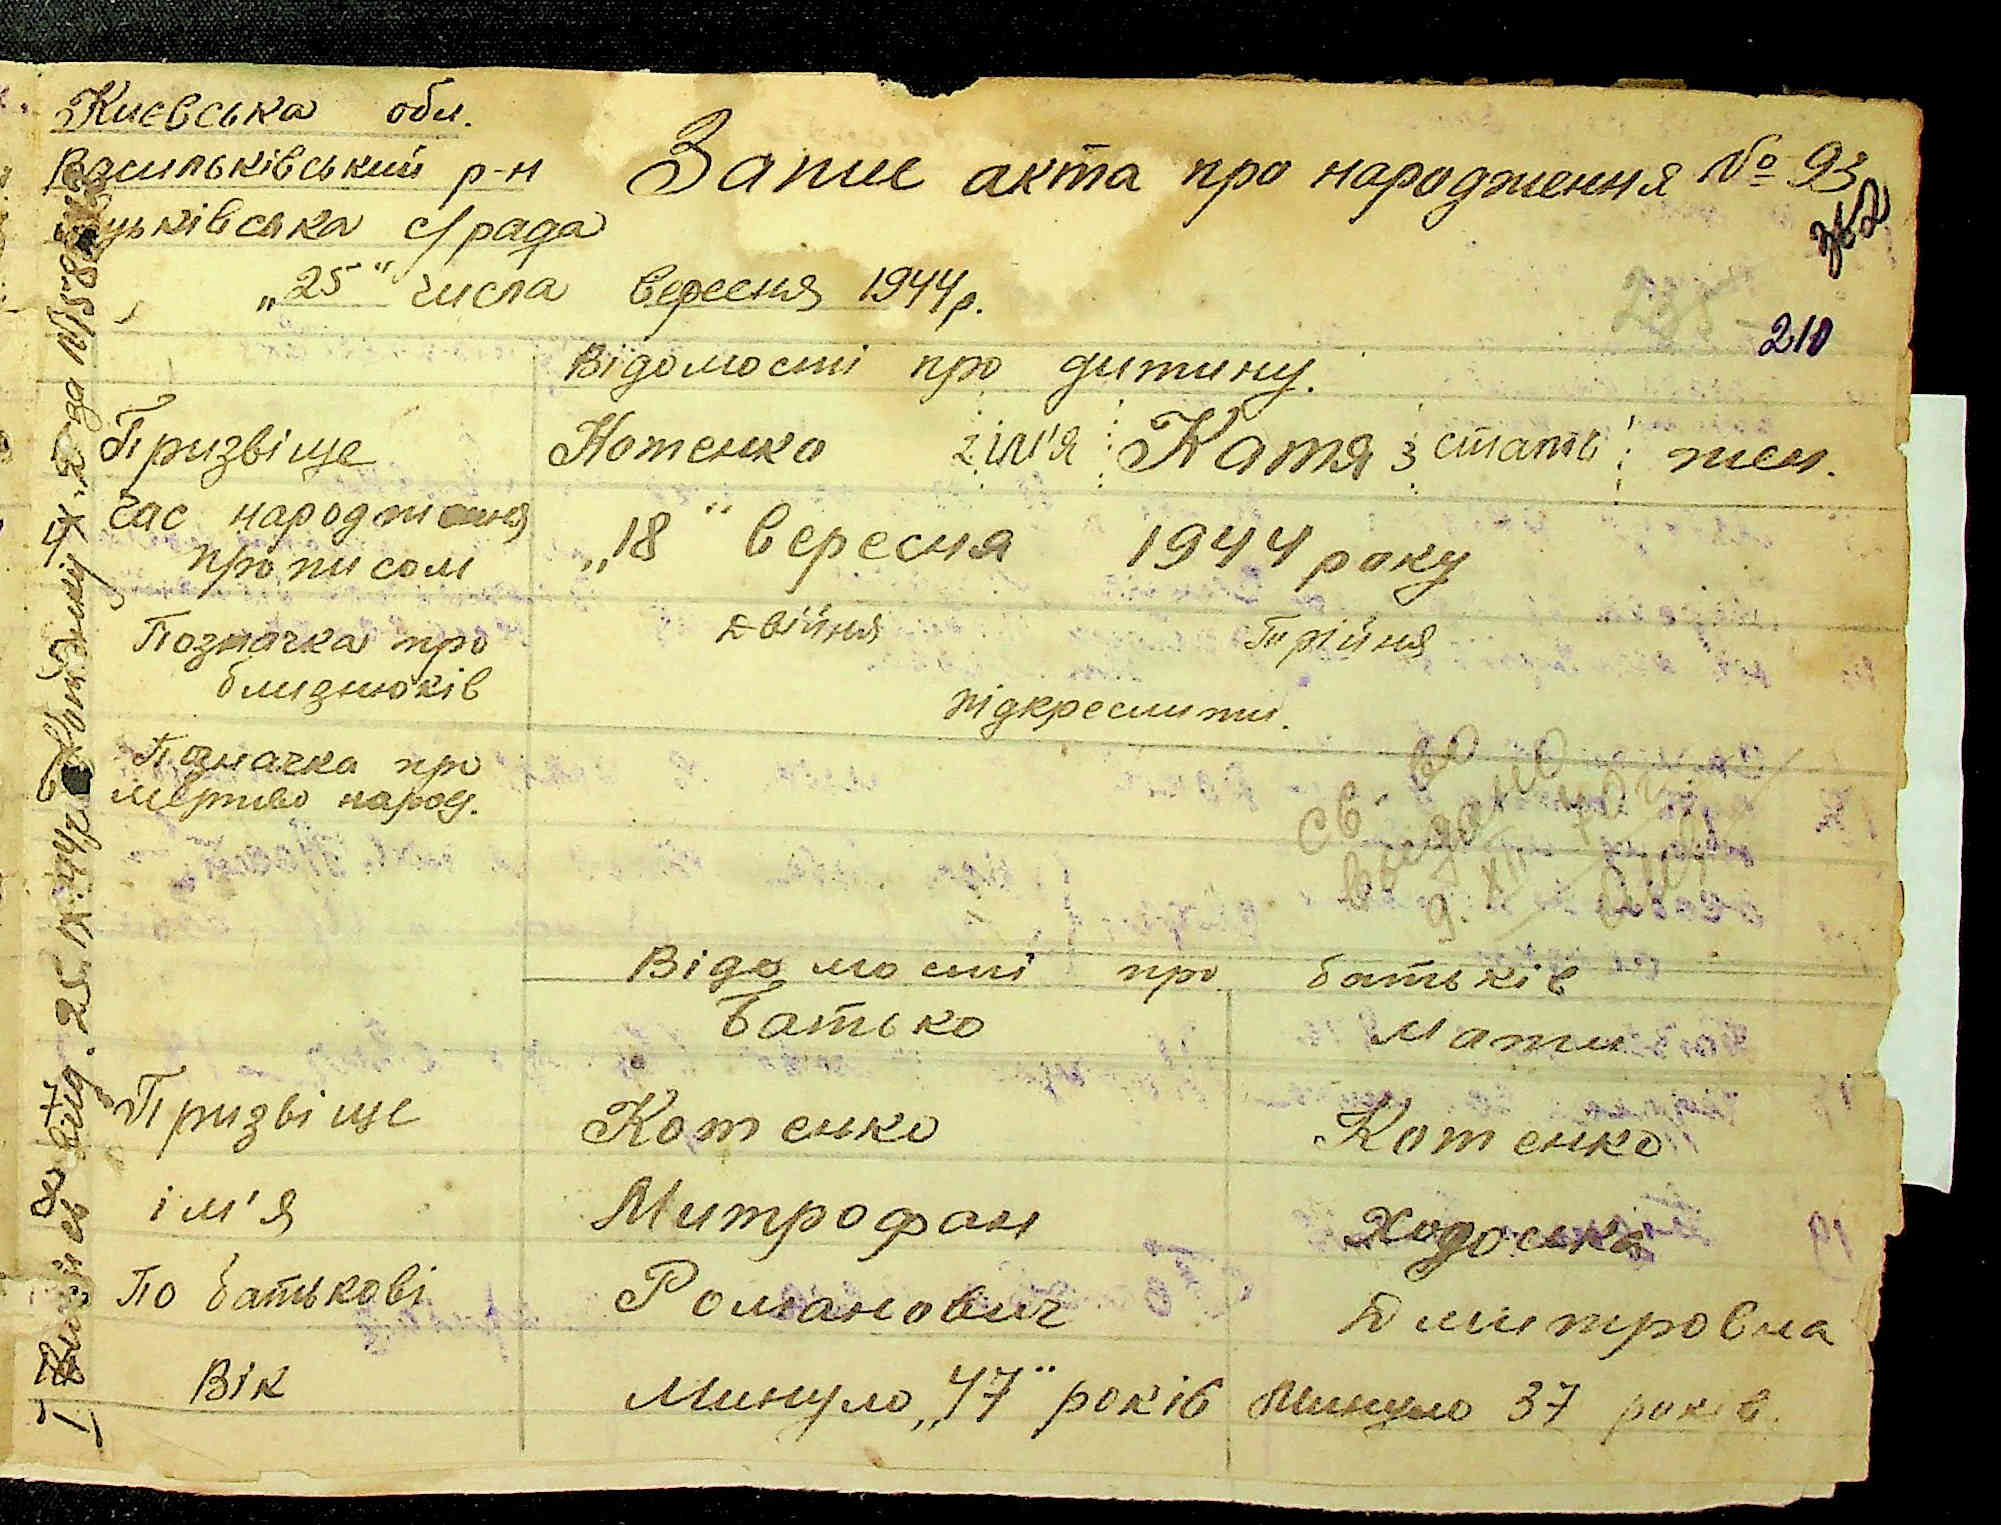 Києвська обл.
Васильківський р-н
с/рада
Запис акта про народження № 93
362
„25“ числа вересня 1944 р.
210
Відомості про дитину.
Призвіще Котенко 2 ім'я Катя 3 стать жен.
час народження „18“ вересня 1944 року
прописом
Позначка про двійня Трійня
близнюків підкреслити.
Позначка про
мертво народ.
св-во
выдано
9. XII
Відомості про батьків
Батько Мати
Призвіще Котенко Котенко
ім'я Митрофан Ходоська
По батькові Романович Дмитровна
Вік Минуло „47“ років Минуло 37 років.